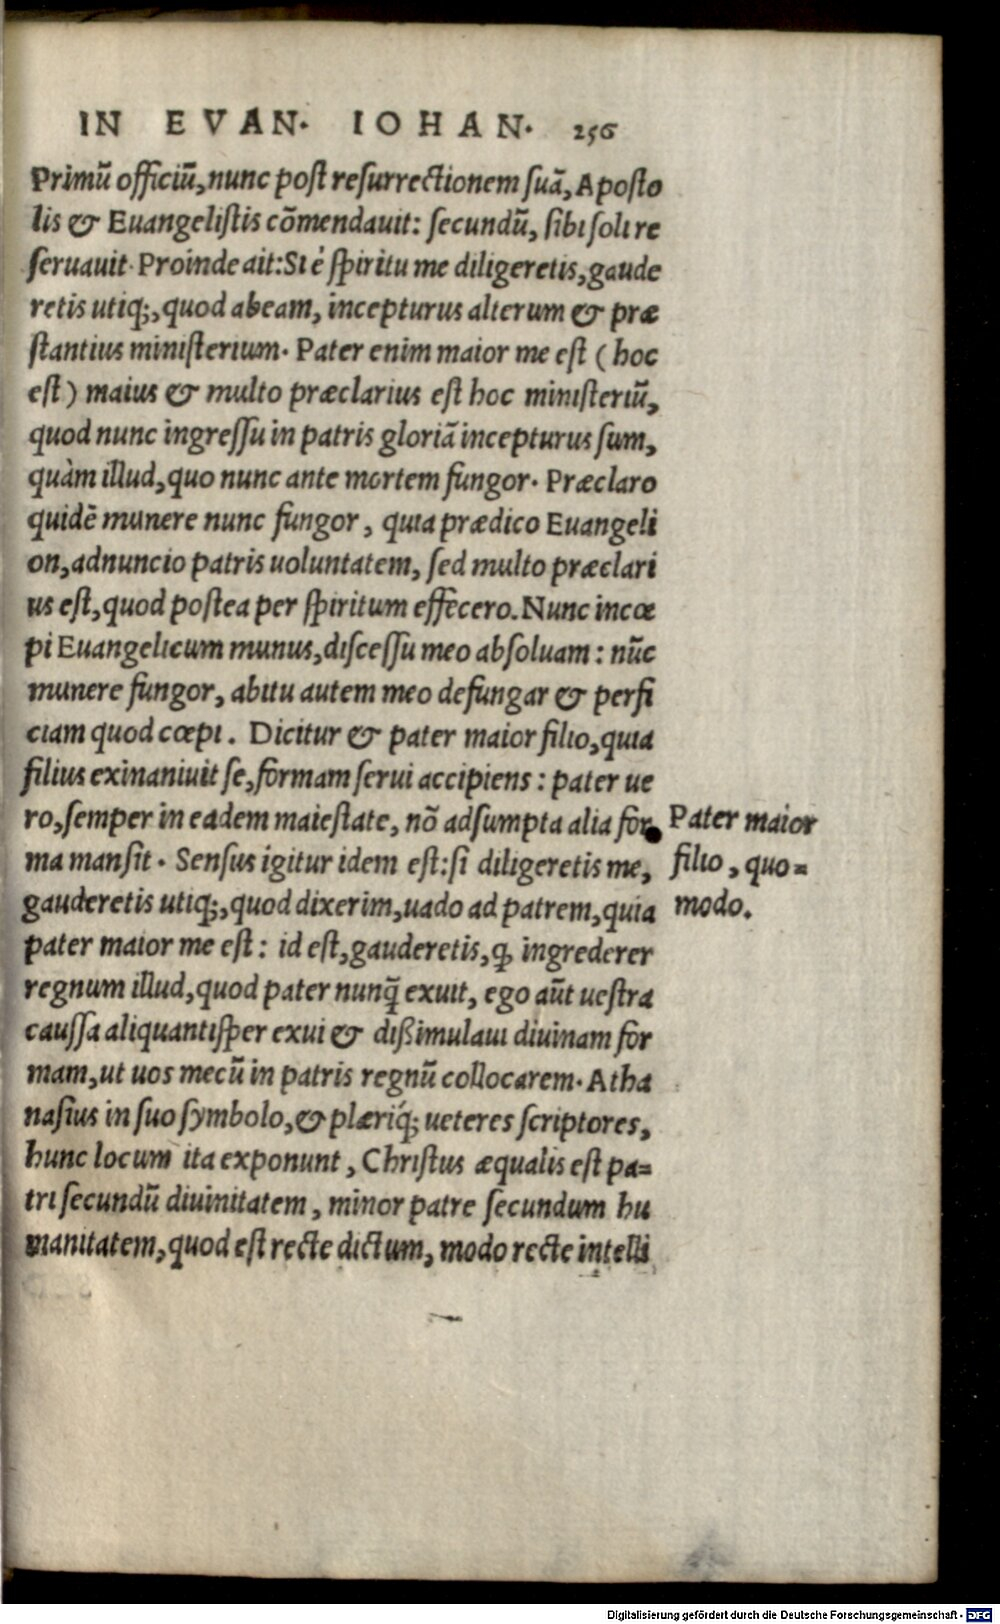 IN EVAN. IOHAN. 256
Primū officiū, nunc post resurrectionem suā, Aposto
lis & Euangelistis cōmendauit: secundū, sibi soli re
seruauit. Proinde ait: Si è spiritu me diligeretis, gaude
retis utiq;, quod abeam, incepturus alterum & præ
stantius ministerium. Pater enim maior me est (hoc
est) maius & multo præclarius est hoc ministeriū,
quod nunc ingressu in patris gloriā incepturus sum,
quàm illud, quo nunc ante mortem fungor. Præclaro
quidē munere nunc fungor, quia prædico Euangeli
on, adnuncio patris uoluntatem, sed multo præclari
us est, quod postea per spiritum effecero. Nunc incœ
pi Euangelicum munus, discessu meo absoluam: nūc
munere fungor, abitu autem meo defungar & perfi
ciam quod cœpi. Dicitur & pater maior filio, quia
filius exinaniuit se, formam serui accipiens: pater ue
ro, semper in eadem maiestate, nō adsumpta alia for
ma mansit. Sensus igitur idem est: si diligeretis me,
gauderetis utiq;, quod dixerim, uado ad patrem, quia
pater maior me est: id est, gauderetis, ꝙ ingrederer
regnum illud, quod pater nunq̃ exuit, ego aūt uestra
caussa aliquantisper exui & dißimulaui diuinam for
mam, ut uos mecū in patris regnū collocarem. Atha
nasius in suo symbolo, & plæriq́; ueteres scriptores,
hunc locum ita exponunt, Christus æqualis est pa=
tri secundū diuinitatem, minor patre secundum hu
manitatem, quod est recte dictum, modo recte intelli
Pater maior
filio, quo=
modo.
Digitalisierung gefördert durch die Deutsche Forschungsgemeinschaft - DFG